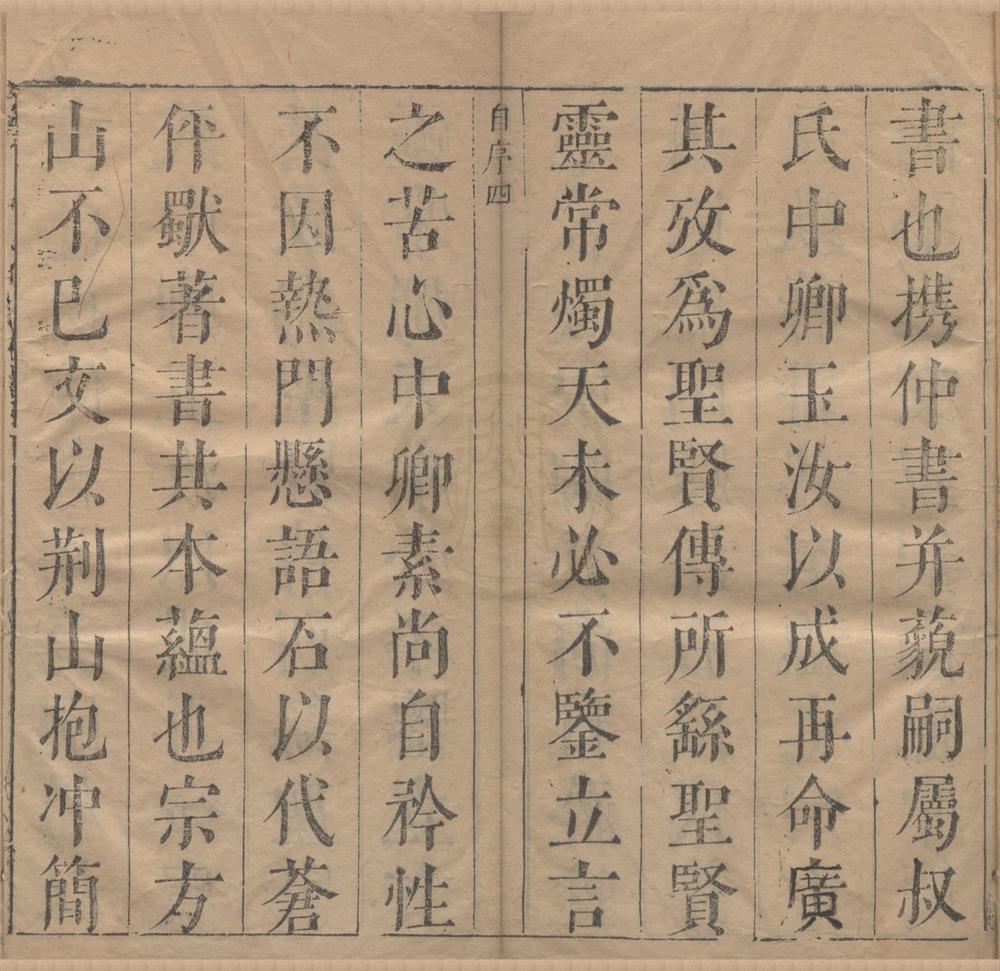 書也携仲書并藐嗣屬叔
氏中卿玉汝以成再命廣
其攷爲聖賢傳所繇聖賢
靈常燭天未必不鑒立言
自序四
之苦心中卿素尚自矜性
不因熱門懸語石以代蒼
伻獸著書其本蘊也宗方
山不已文以荆山抱冲簡